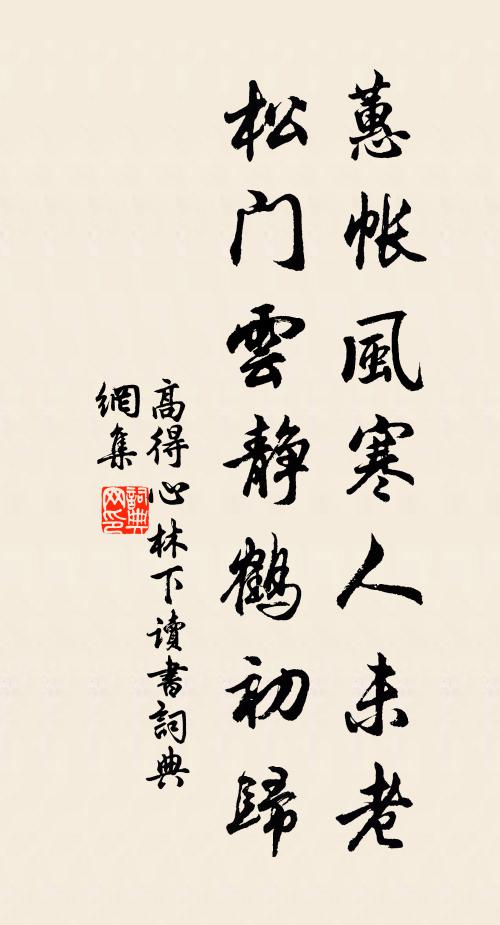 蕙帐風寒人未老
松门雲静鶴初歸
高得心林下讀書詞典
網集
詞典网印